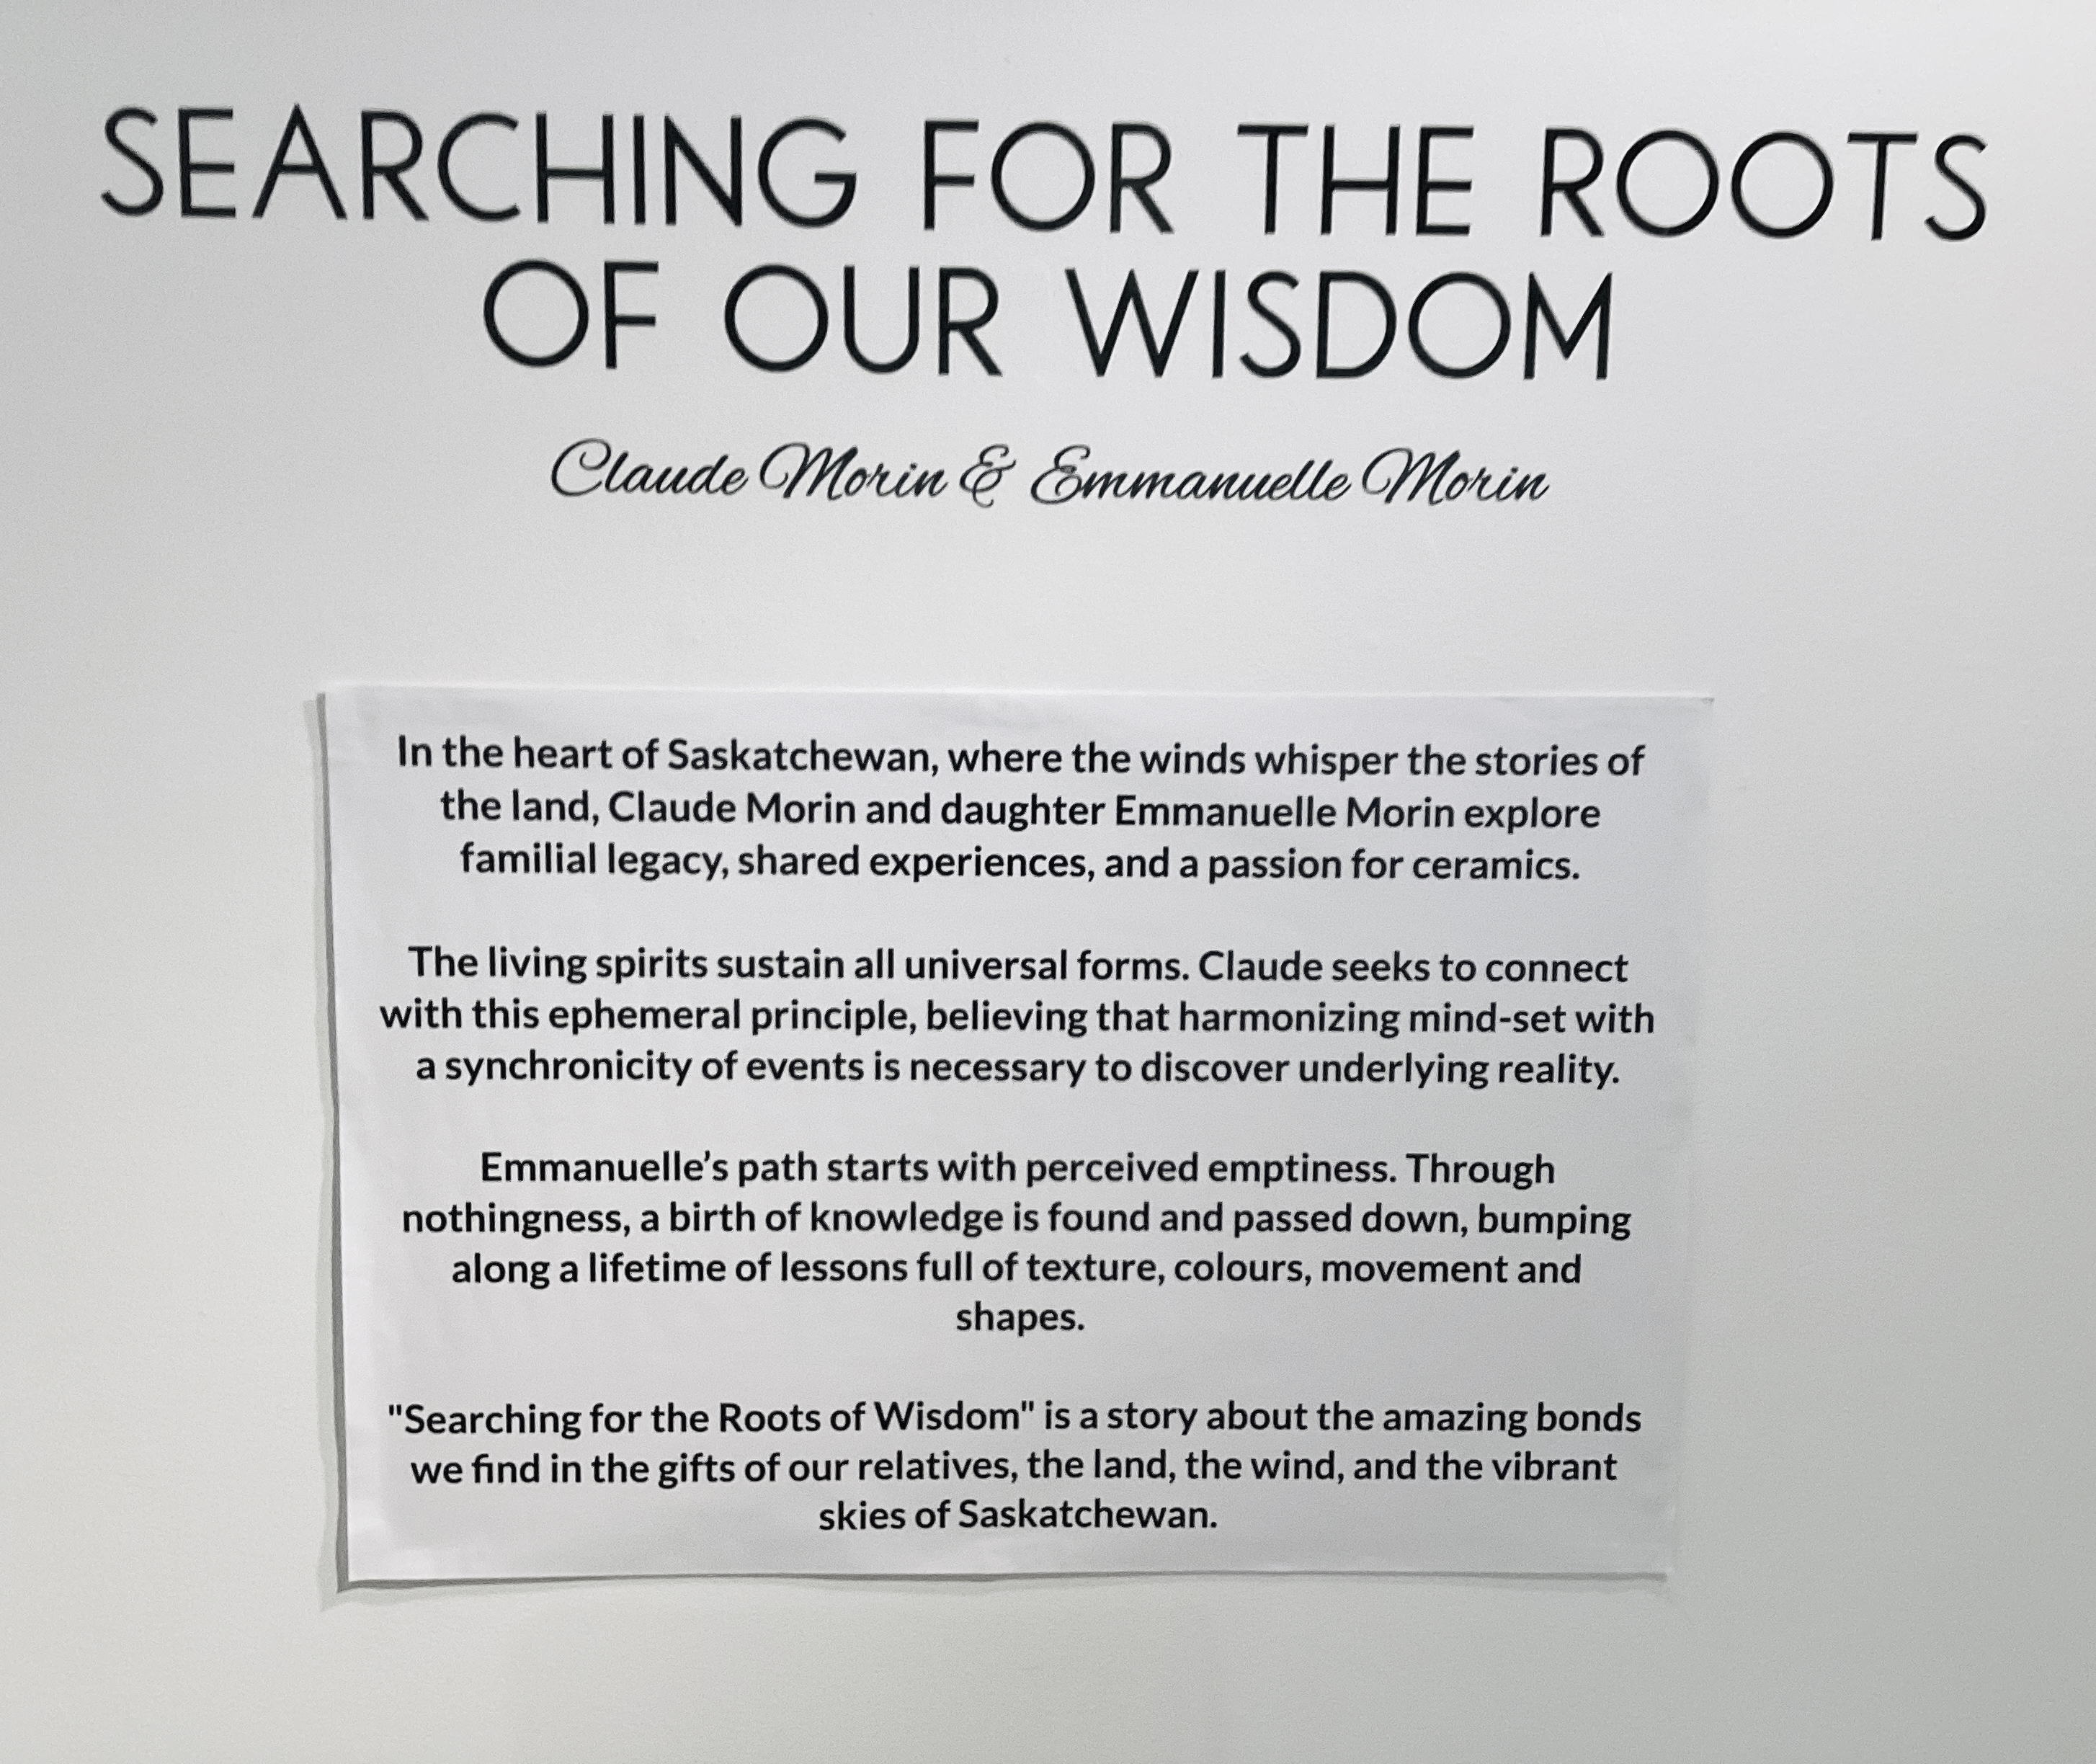 SEARCHING FOR THE ROOTS
OF OUR WISDOM
Claude Morin & Emmanuelle Morin
In the heart of Saskatchewan, where the winds whisper the stories of
the land, Claude Morin and daughter Emmanuelle Morin explore
familial legacy, shared experiences, and a passion for ceramics.
The living spirits sustain all universal forms. Claude seeks to connect
with this ephemeral principle, believing that harmonizing mind-set with
a synchronicity of events is necessary to discover underlying reality.
Emmanuelle’s path starts with perceived emptiness. Through
nothingness, a birth of knowledge is found and passed down, bumping
along a lifetime of lessons full of texture, colours, movement and
shapes.
"Searching for the Roots of Wisdom" is a story about the amazing bonds
we find in the gifts of our relatives, the land, the wind, and the vibrant
skies of Saskatchewan.